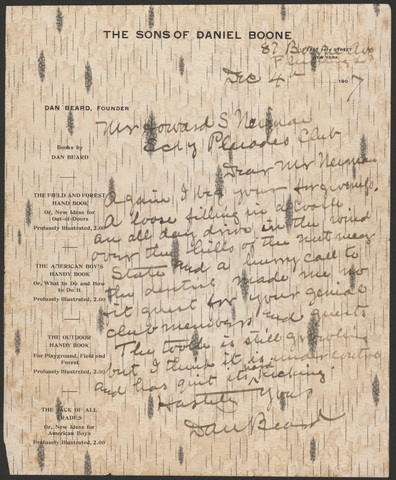 THE SONS OF DANIEL BOONE
87
STREET
NEW YORK
Flushing
Dec 4th 1907
DAN BEARD, FOUNDER
Mr Howard S Neiman
Secty Pleiades Club
Dear Mr Neiman
Books by
DAN BEARD
Again I beg your forgiveness.
THE FIELD AND FOREST
HAND BOOK
Or, New Ideas for
Out-of-Doors
Profusely Illustrated, 2.00
A loose filling in a tooth
an all day drive in the wind
over the hills of the Nutmeg
State and a hurry call to
the dentist made me no
fit guest for your genial
club members and guests
THE AMERICAN BOY'S
HANDY BOOK
Or, What to Do and How
to Do It
Profusely Illustrated, 2.00
The tooth is still grumbling
but I think it is under control
and has quit its kicking.
THE OUTDOOR
HANDY BOOK
For Playground, Field and
Forest
Profusely Illustrated, 2.00
Hastily Yours
Dan Beard
THE JACK OF ALL
TRADES
Or, New Ideas for
American Boys
Profusely Illustrated, 2.00